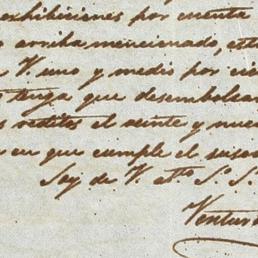 exhibiciones por cuenta
arriba mencionado, est
V. uno y medio por ci
tenga que desembolsar
reditos el veinte y nueve
en que cumple el
Soy de V. atto S. S.
Ventur